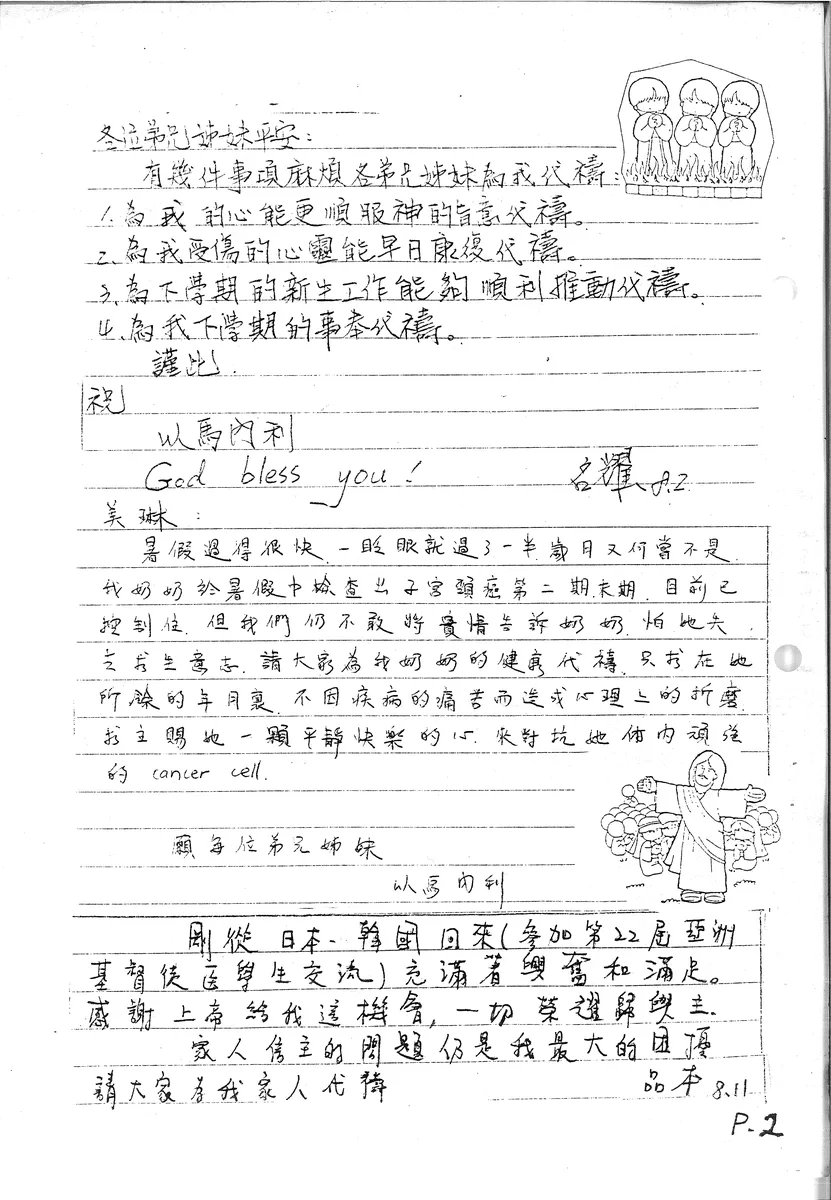 各位弟兄姊妹平安：
有幾件事項麻煩各弟兄姊妹為我代禱：
1.為我的心能更順服神的旨意代禱。
2.為我受傷的心靈能早日康復代禱。
3.為下學期的新生工作能夠順利推動代禱。
4.為我下學期的事奉代禱。
謹此.
祝
以馬內利
God bless you!
名耀 8.2
美琳：
暑假過得很快.一眨眼就過了一半歲月又何嘗不是.
我奶奶於暑假中檢查出子宮頸癌第二期末期.目前已
控制住.但我們仍不敢將實情告訴奶奶.怕她失
去求生意志.請大家為我奶奶的健康代禱.只求在她
所餘的年月裏.不因疾病的痛苦而造成心理上的折磨.
求主賜她一顆平靜快樂的心.來對抗她体內頑強
的 cancer cell.
願每位弟兄姊妹
以馬內利
剛從日本、韓國回來(參加第22屆亞洲
基督徒医學生交流)充滿著興奮和滿足。
感謝上帝給我這機會,一切榮耀歸與主.
家人信主的問題仍是我最大的困擾
請大家為我家人代禱
品本 8.11
P.2